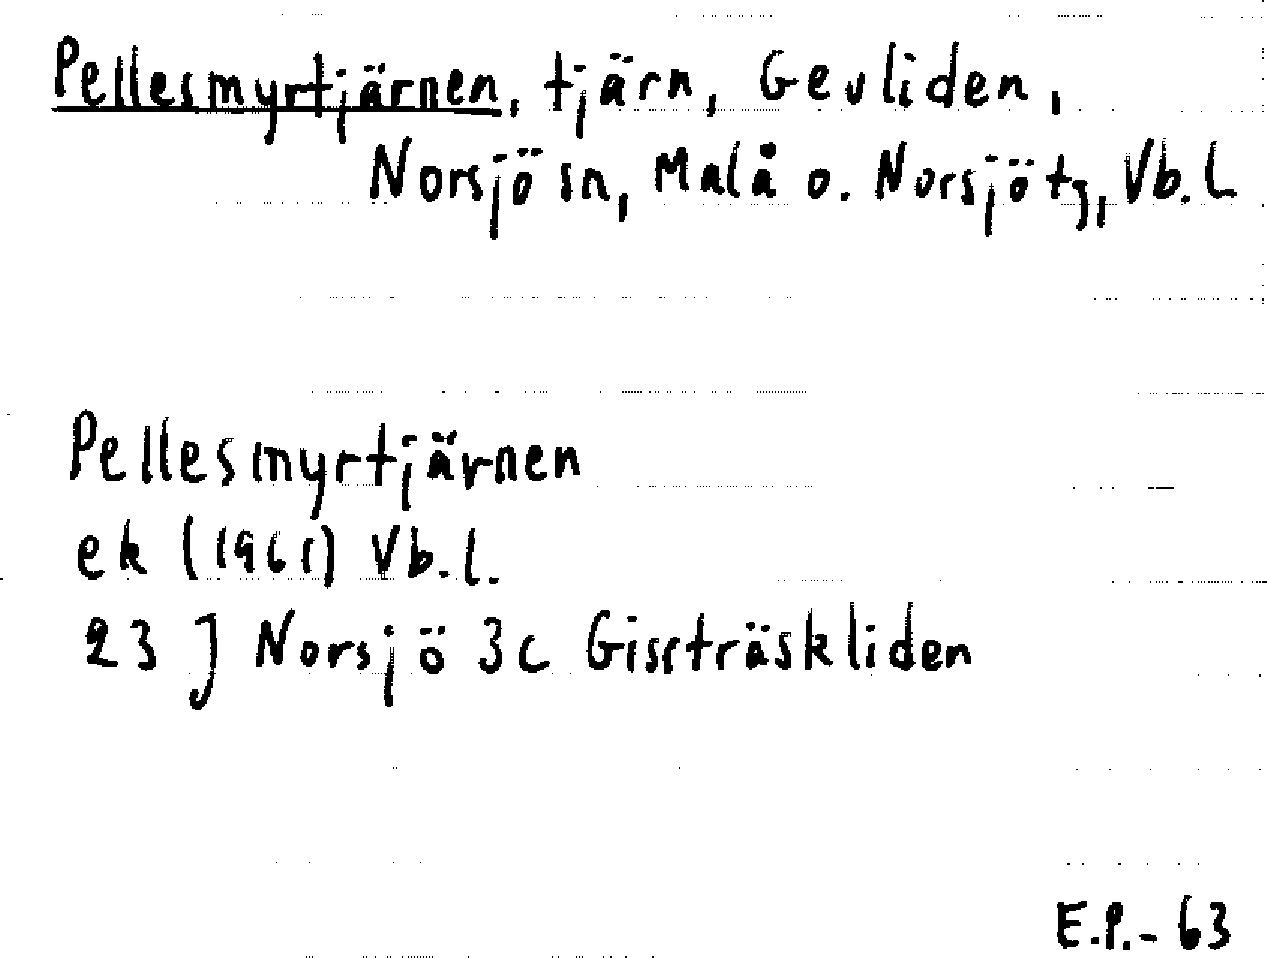 Pellesmyrtjärnen, tjärn, Gevliden,
Norsjö sn, Malå o. Norsjö tg, Vb. L
Pellesmyrtjärnen
ek (1961) Vb. l.
23 J Norsjö 3c Gissträskliden
E.P.- 63